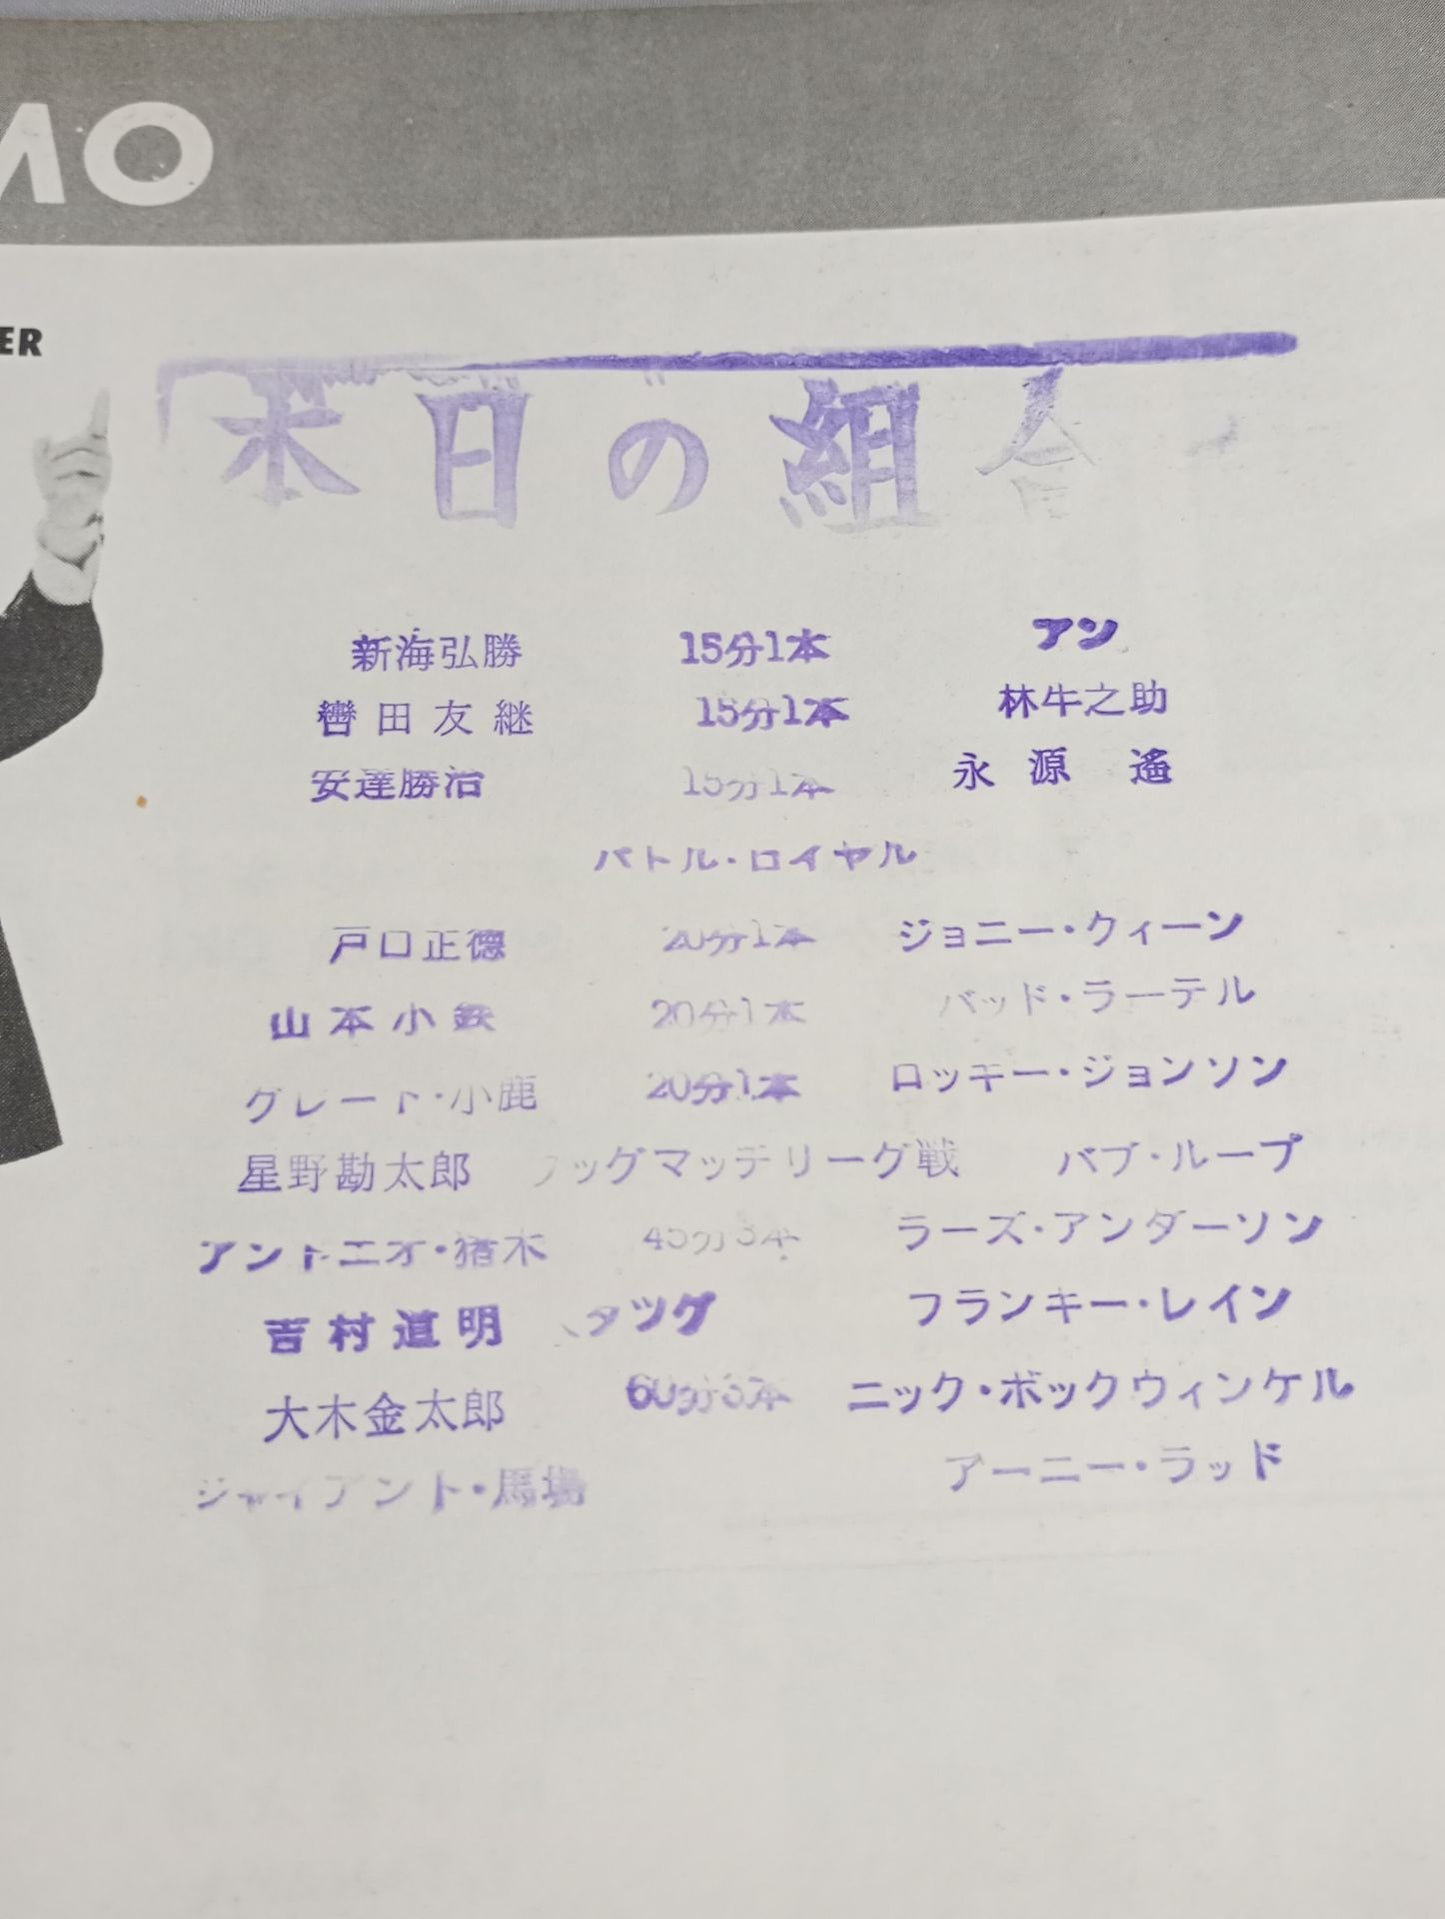 MO
ER
本日の組合
新海弘勝 15分1本 アン
轡田友継 15分1本 林牛之助
安達勝治 15分1本 永源遙
バトル・ロイヤル
戸口正徳 20分1本 ジョニー・クィーン
山本小鉄 20分1本 バッド・ラーテル
グレート・小鹿 20分1本 ロッキー・ジョンソン
星野勘太郎 タッグマッチリーグ戦 バブ・ループ
アントニオ・猪木 45分3本 ラーズ・アンダーソン
吉村道明 タッグ フランキー・レイン
大木金太郎 60分3本 ニック・ボックウィンケル
ジャイアント・馬場 アーニー・ラッド